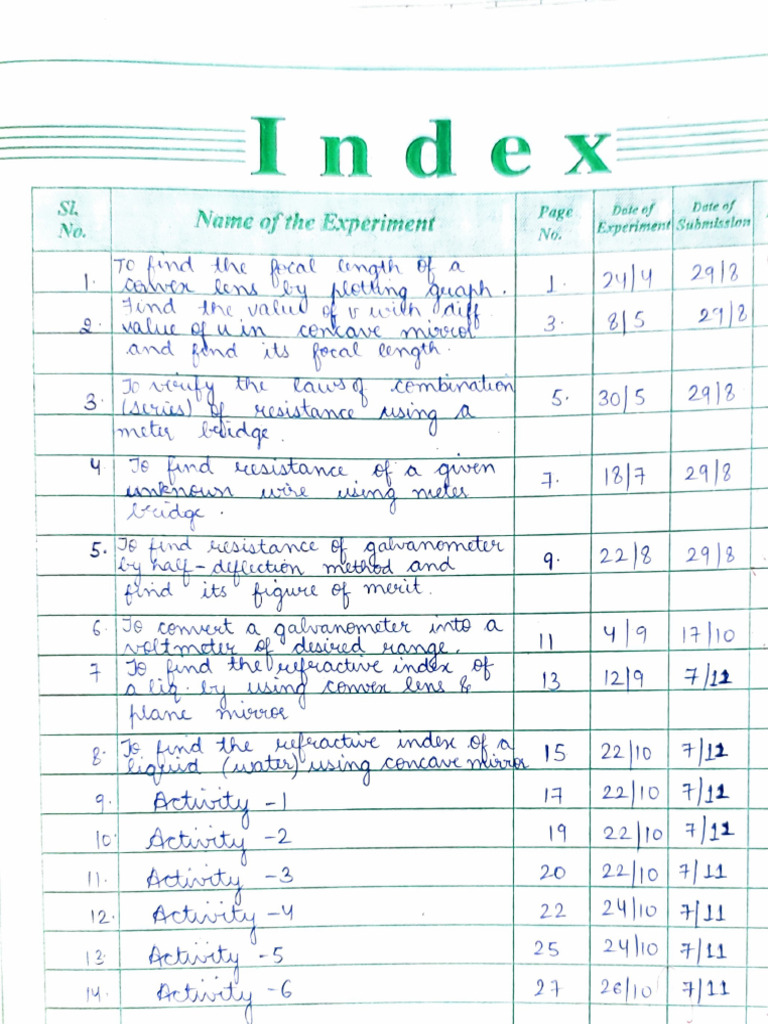 Index
Sl. No. Name of the Experiment Page No. Date of Experiment Date of Submission
1. To find the focal length of a 1. 24/4 29/8
convex lens by plotting graph.
Find the value of v with diff
2. value of u in concave mirror 3. 8/5 29/8
and find its focal length.
3. To verify the laws of combination 5. 30/5 29/8
(series) of resistance using a
meter bridge.
4 To find resistance of a given 7. 18/7 29/8
unknown wire using meter
bridge.
5. To find resistance of galvanometer 9. 22/8 29/8
by half-deflection method and
find its figure of merit.
6. To convert a galvanometer into a 11 4/9 17/10
voltmeter of desired range.
7 To find the refractive index of 13 12/9 7/11
a liq. by using convex lens &
plane mirror
8. To find the refractive index of a 15 22/10 7/11
liquid (water) using concave mirror
9. Activity -1 17 22/10 7/11
10. Activity -2 19 22/10 7/11
11. Activity -3 20 22/10 7/11
12. Activity -4 22 24/10 7/11
13. Activity -5 25 24/10 7/11
14. Activity -6 27 26/10 7/11